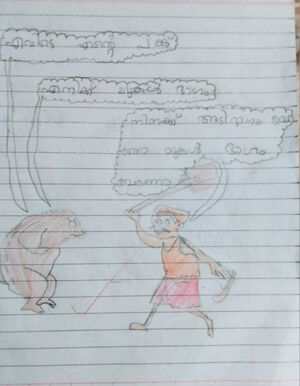 എവിടെ എന്റെ പങ്ക്
എനിക്ക് മുകൾ ഭാഗം
നിനക്ക് അടിഭാഗം വേ
ണോ മുകൾ ഭാഗം
വേണോ